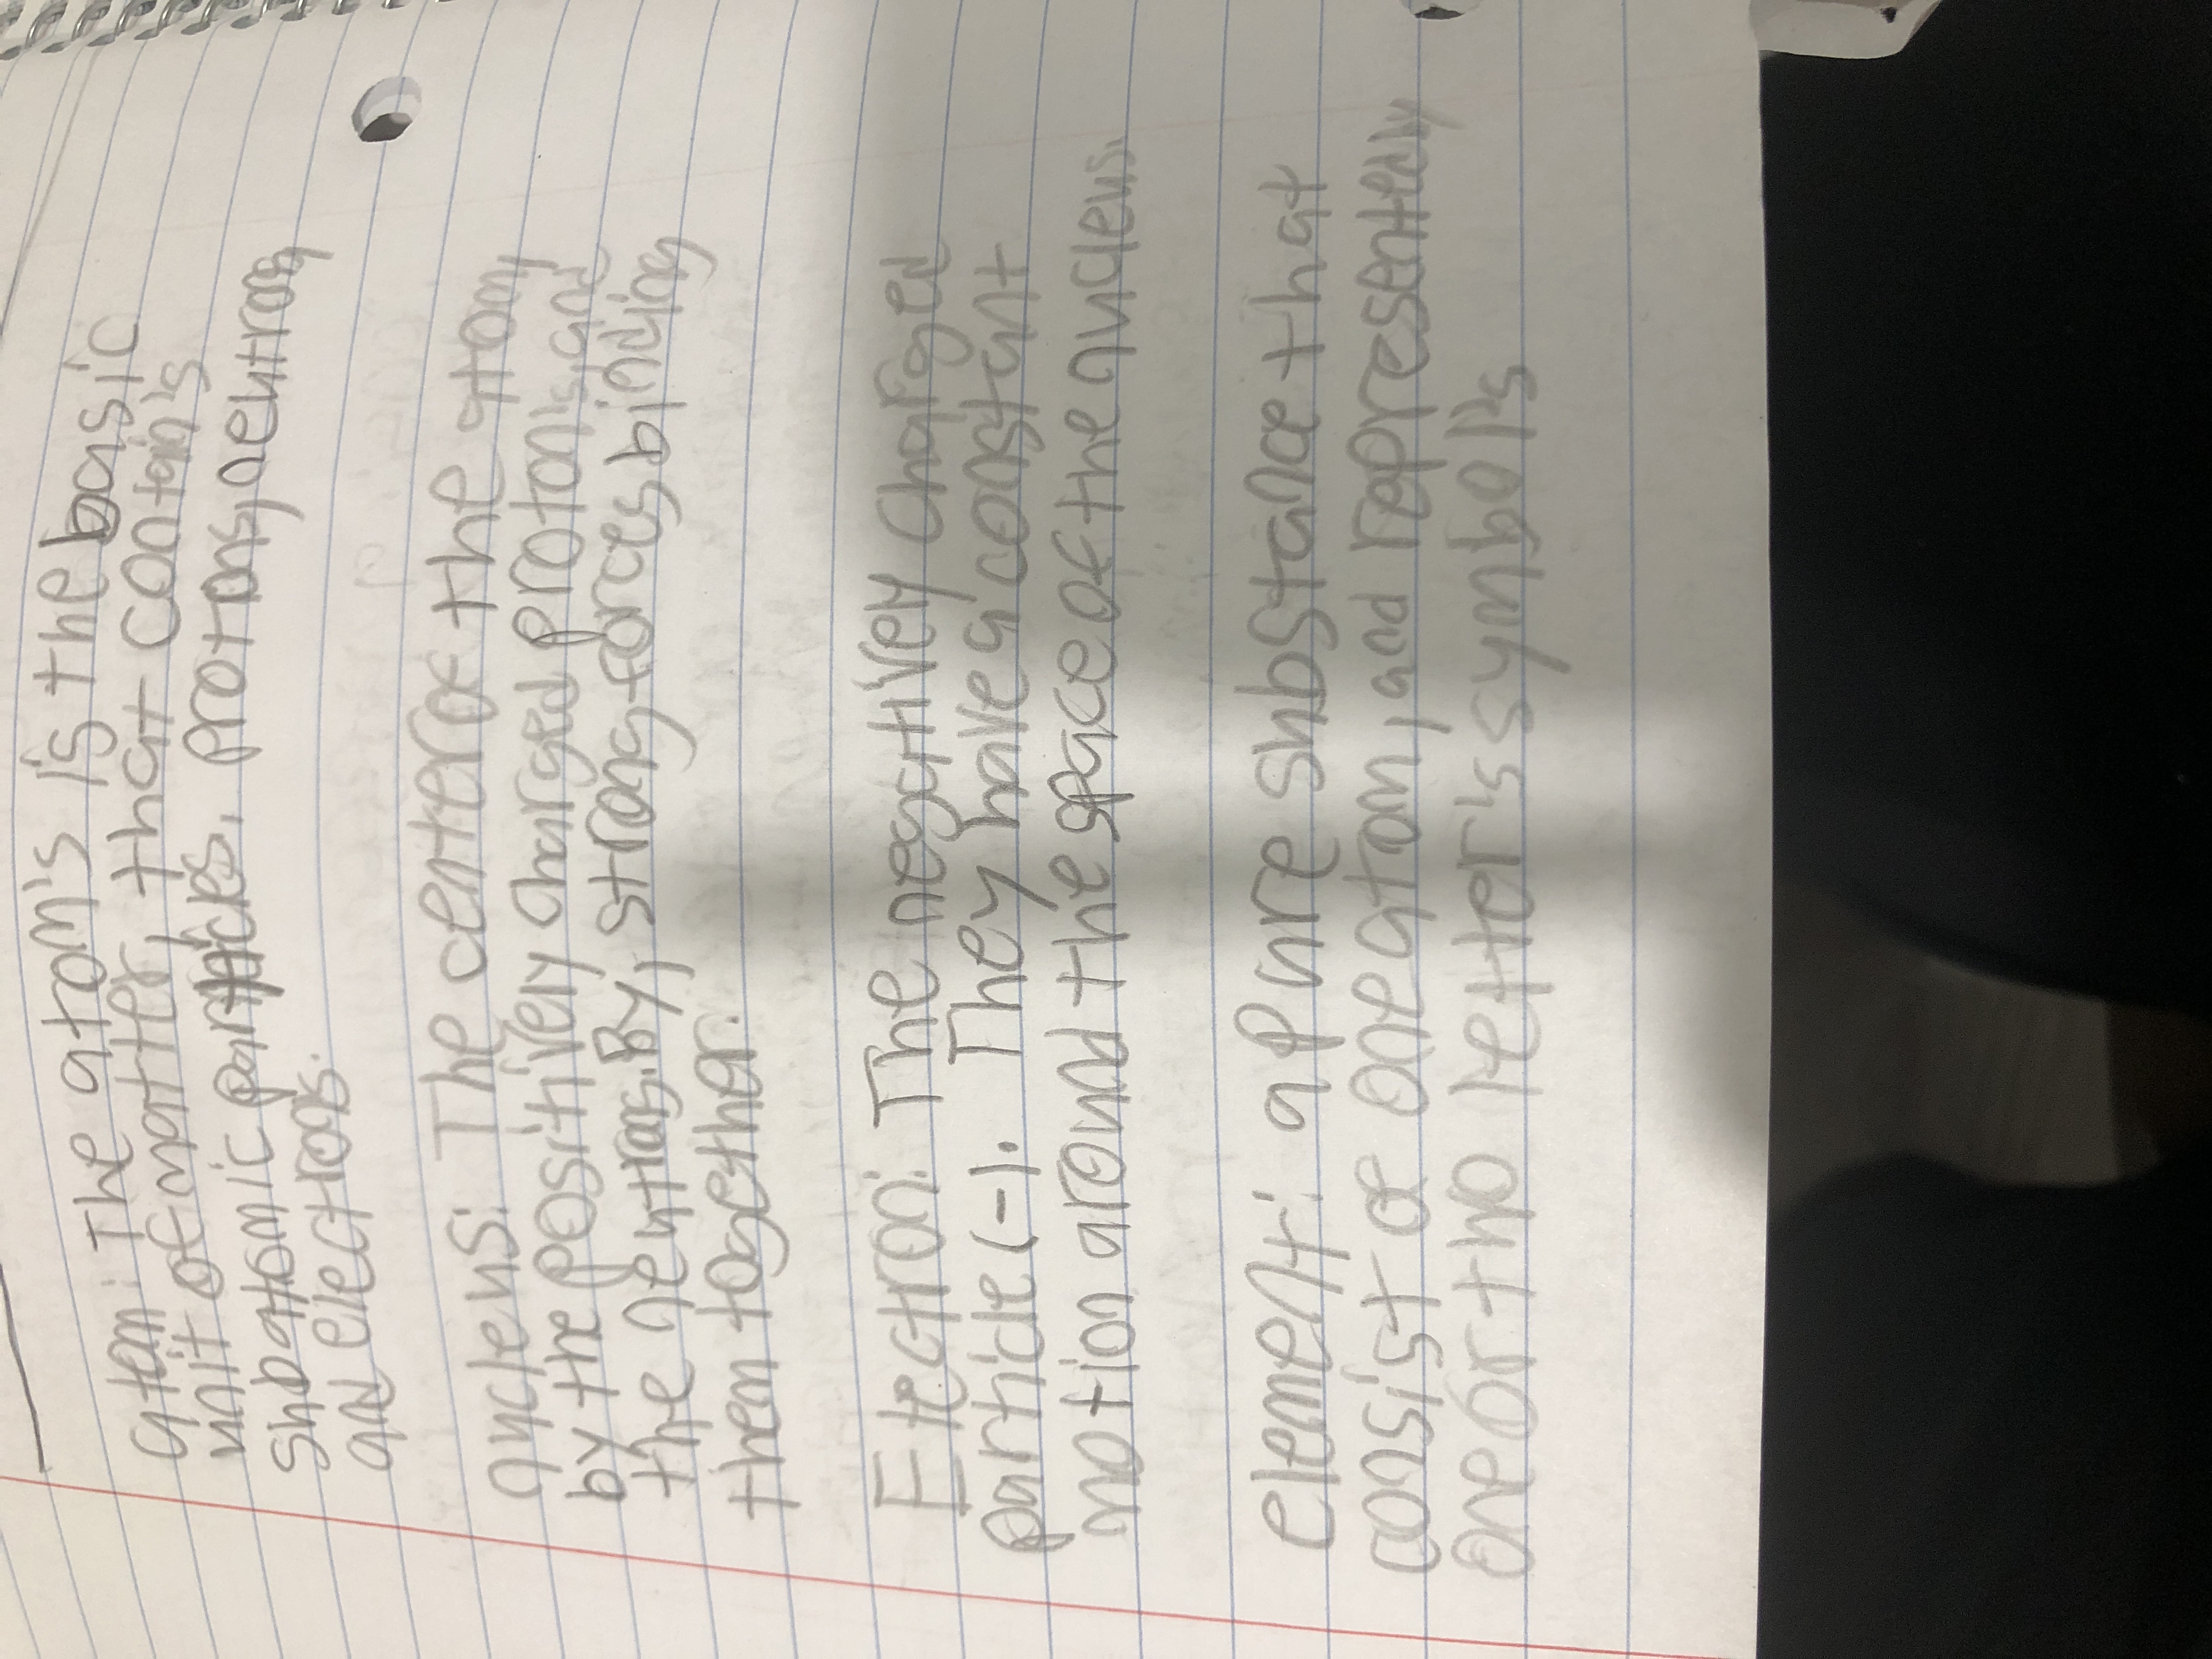 atom: The atom's is the basic
unit of matter, that contain's
subatomic particles. protons, neutron,
and electrons.
nucleus: The center of the atom,
by the positively charged proton's, and
the neutrons. By, strong forces binding
then together.
Electron: The negativey charged
particle (-). They have a constant
motion around the space of the nucleus.
element: a pure substance that
consist of one atom, and represented by
one or two letter's symbols